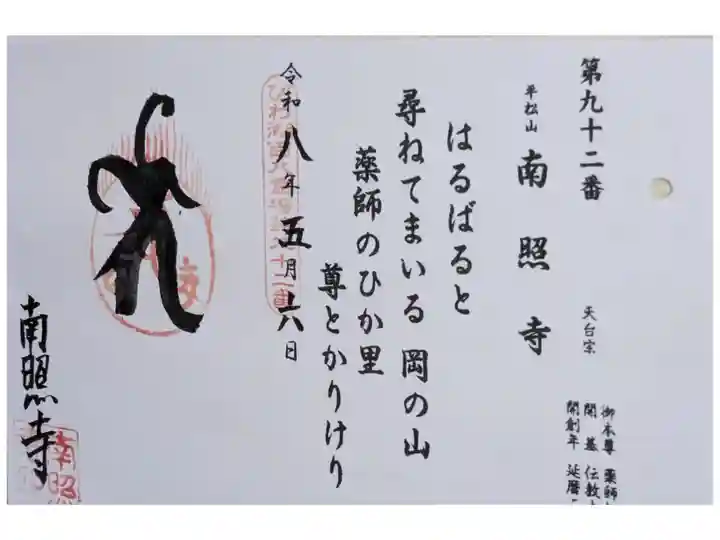 第九十二番
平松山 南照寺 天台宗
御本尊 薬師
開基 伝教
開創年 延暦
はるばると
尋ねてまいる 岡の山
薬師のひか里
尊とかりけり
令和八年五月六日
南照寺
南照